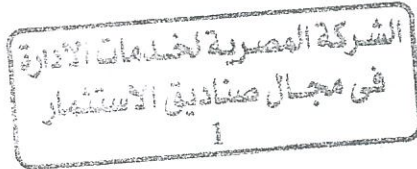 الشركة المصرية لخدمات الادارة
فى مجال صناديق الاستثمار
1